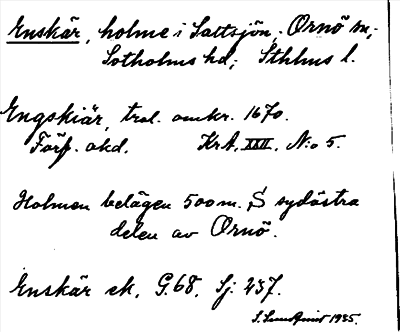 Enskär, holme i Saltsjön; Ornö sn;
Sotholms hd; Sthlms l.
Engskiär, trol. omkr. 1670.
Förp. akd. Krt. XXII. N:o 5.
Holmen belägen 500 m. S sydöstra
delen av Ornö.
Enskär ek. G.68. Sj: 237.
1935.